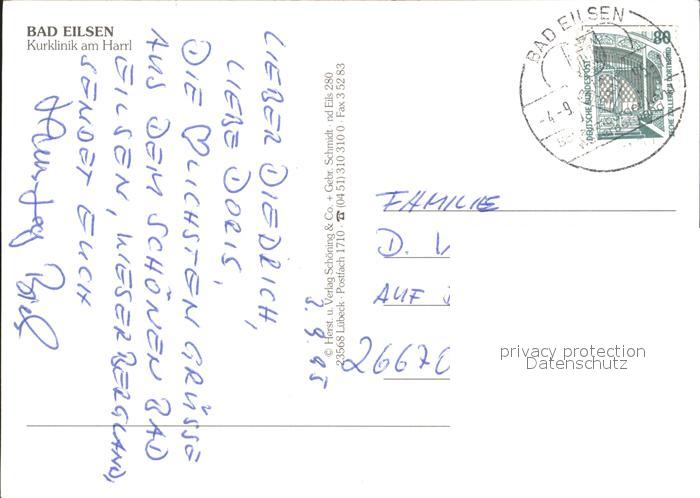 BAD EILSEN
Kurklinik am Harrl
LIEBER DIEDRICH,
LIEBE DORIS,
DIE ♡LICHSTEN GRÜSSE
AUS DEM SCHÖNEN BAD
EILSEN, WESERBERGLAND,
SENDET EUCH
© Herst. u. Verlag Schöning & Co. + Gebr. Schmidt · nd Eils 280
23568 Lübeck · Postfach 1710 · ☎ (04 51) 310 310 0 · Fax 3 52 83
BAD EILSEN
-4.-9.
80
DEUTSCHE BUNDESPOST
ZECHE ZOLLERN II DORTMUND
FAMILIE
D.
AUF
26670
privacy protection
Datenschutz